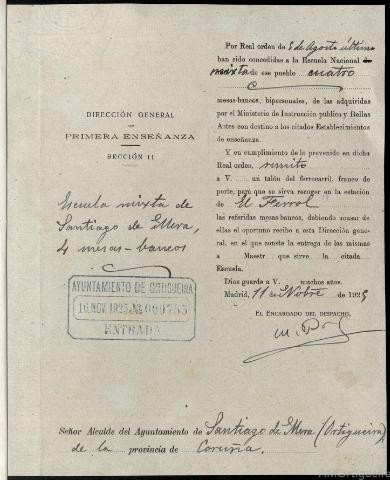 DIRECCIÓN GENERAL
DE
PRIMERA ENSEÑANZA
SECCIÓN 11
Escuela mixta de
Santiago de Mera,
4 mesas-bancos
AYUNTAMIENTO DE ORTIGUEIRA
16.NOV.1925
ENTRADA
Por Real orden de 8 de Agosto último
han sido concedidas a la Escuela Nacional de
mixta de ese pueblo cuatro
mesas-bancos, bipersonales, de las adquiridas
por el Ministerio de Instrucción pública y Bellas
Artes con destino a los citados Establecimientos
de enseñanza.
Y en cumplimiento de lo prevenido en dicha
Real orden, remito
a V. un talón del ferrocarril, franco de
porte, para que se sirva recoger en la estación
de El Ferrol
las referidas mesas-bancos, debiendo acusar de
ellas el oportuno recibo a esta Dirección gene-
ral, en el que conste la entrega de las mismas
a Maestr que sirve la citada
Escuela.
Dios guarde a V. muchos años.
Madrid, 11 de Nobre de 1925
EL ENCARGADO DEL DESPACHO,
Señor Alcalde del Ayuntamiento de Santiago de Mera (Ortigueira)
de la provincia de Coruña.
AMOrtigueira